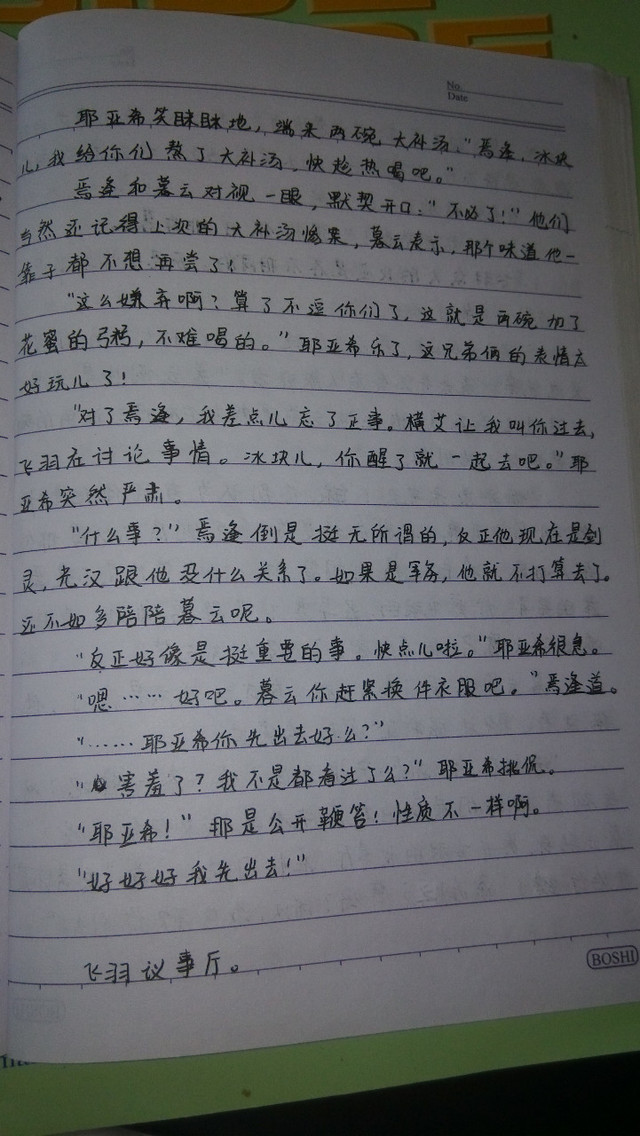 No.
Date
耶亚希笑眯眯地，端来两碗大补汤，“焉逢，冰块
儿，我给你们熬了大补汤，快趁热喝吧。”
焉逢和暮云对视一眼，默契开口：“不必了！”他们
当然还记得上次的大补汤惨案，暮云表示，那个味道他一
辈子都不想再尝了！
“这么嫌弃啊？算了不逗你们了，这就是两碗加了
花蜜的粥，不难喝的。”耶亚希乐了，这兄弟俩的表情太
好玩儿了！
“对了焉逢，我差点儿忘了正事。横艾让我叫你过去，
飞羽在讨论事情。冰块儿，你醒了就一起去吧。”耶
亚希突然严肃。
“什么事？”焉逢倒是挺无所谓的，反正他现在是剑
灵，光汉跟他没什么关系了。如果是军务，他就不打算去了。
还不如多陪陪暮云呢。
“反正好像是挺重要的事。快点儿啦。”耶亚希很急。
“嗯……好吧。暮云你赶紧换件衣服吧。”焉逢道。
“……耶亚希你先出去好么？”
“害羞了？我不是都看过了么？”耶亚希挑侃。
“耶亚希！”那是公开鞭笞！性质不一样啊。
“好好好我先出去！”
飞羽议事厅。
BOSHI